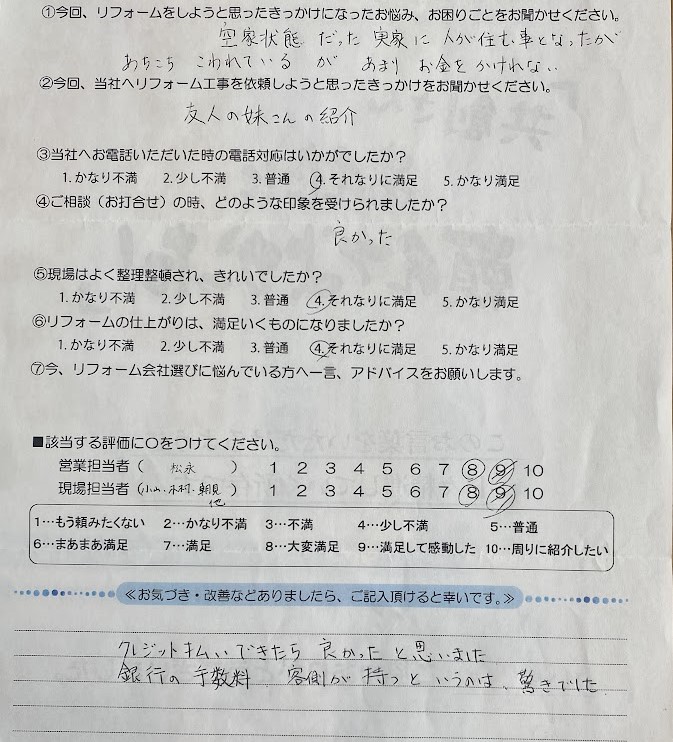 ①今回、リフォームをしようと思ったきっかけになったお悩み、お困りごとをお聞かせください。
空家状態 だった 実家に 人が住む事となったが
あちこち こわれている が あまり お金をかけれない
②今回、当社へリフォーム工事を依頼しようと思ったきっかけをお聞かせください。
友人の妹さんの紹介
③当社へお電話いただいた時の電話対応はいかがでしたか？
1.かなり不満 2.少し不満 3.普通 4.それなりに満足 5.かなり満足
④ご相談（お打合せ）の時、どのような印象を受けられましたか？
良かった
⑤現場はよく整理整頓され、きれいでしたか？
1.かなり不満 2.少し不満 3.普通 4.それなりに満足 5.かなり満足
⑥リフォームの仕上がりは、満足いくものになりましたか？
1.かなり不満 2.少し不満 3.普通 4.それなりに満足 5.かなり満足
⑦今、リフォーム会社選びに悩んでいる方へ一言、アドバイスをお願いします。
■該当する評価に〇をつけてください。
営業担当者（ 松永 ） 1 2 3 4 5 6 7 8 9 10
現場担当者（小山・木村・朝見 他） 1 2 3 4 5 6 7 8 9 10
1…もう頼みたくない 2…かなり不満 3…不満 4…少し不満 5…普通
6…まあまあ満足 7…満足 8…大変満足 9…満足して感動した 10…周りに紹介したい
≪お気づき・改善などありましたら、ご記入頂けると幸いです。≫
クレジット払いできたら 良かった と思いました
銀行の 手数料 客側が 持つ というのは、驚きでした